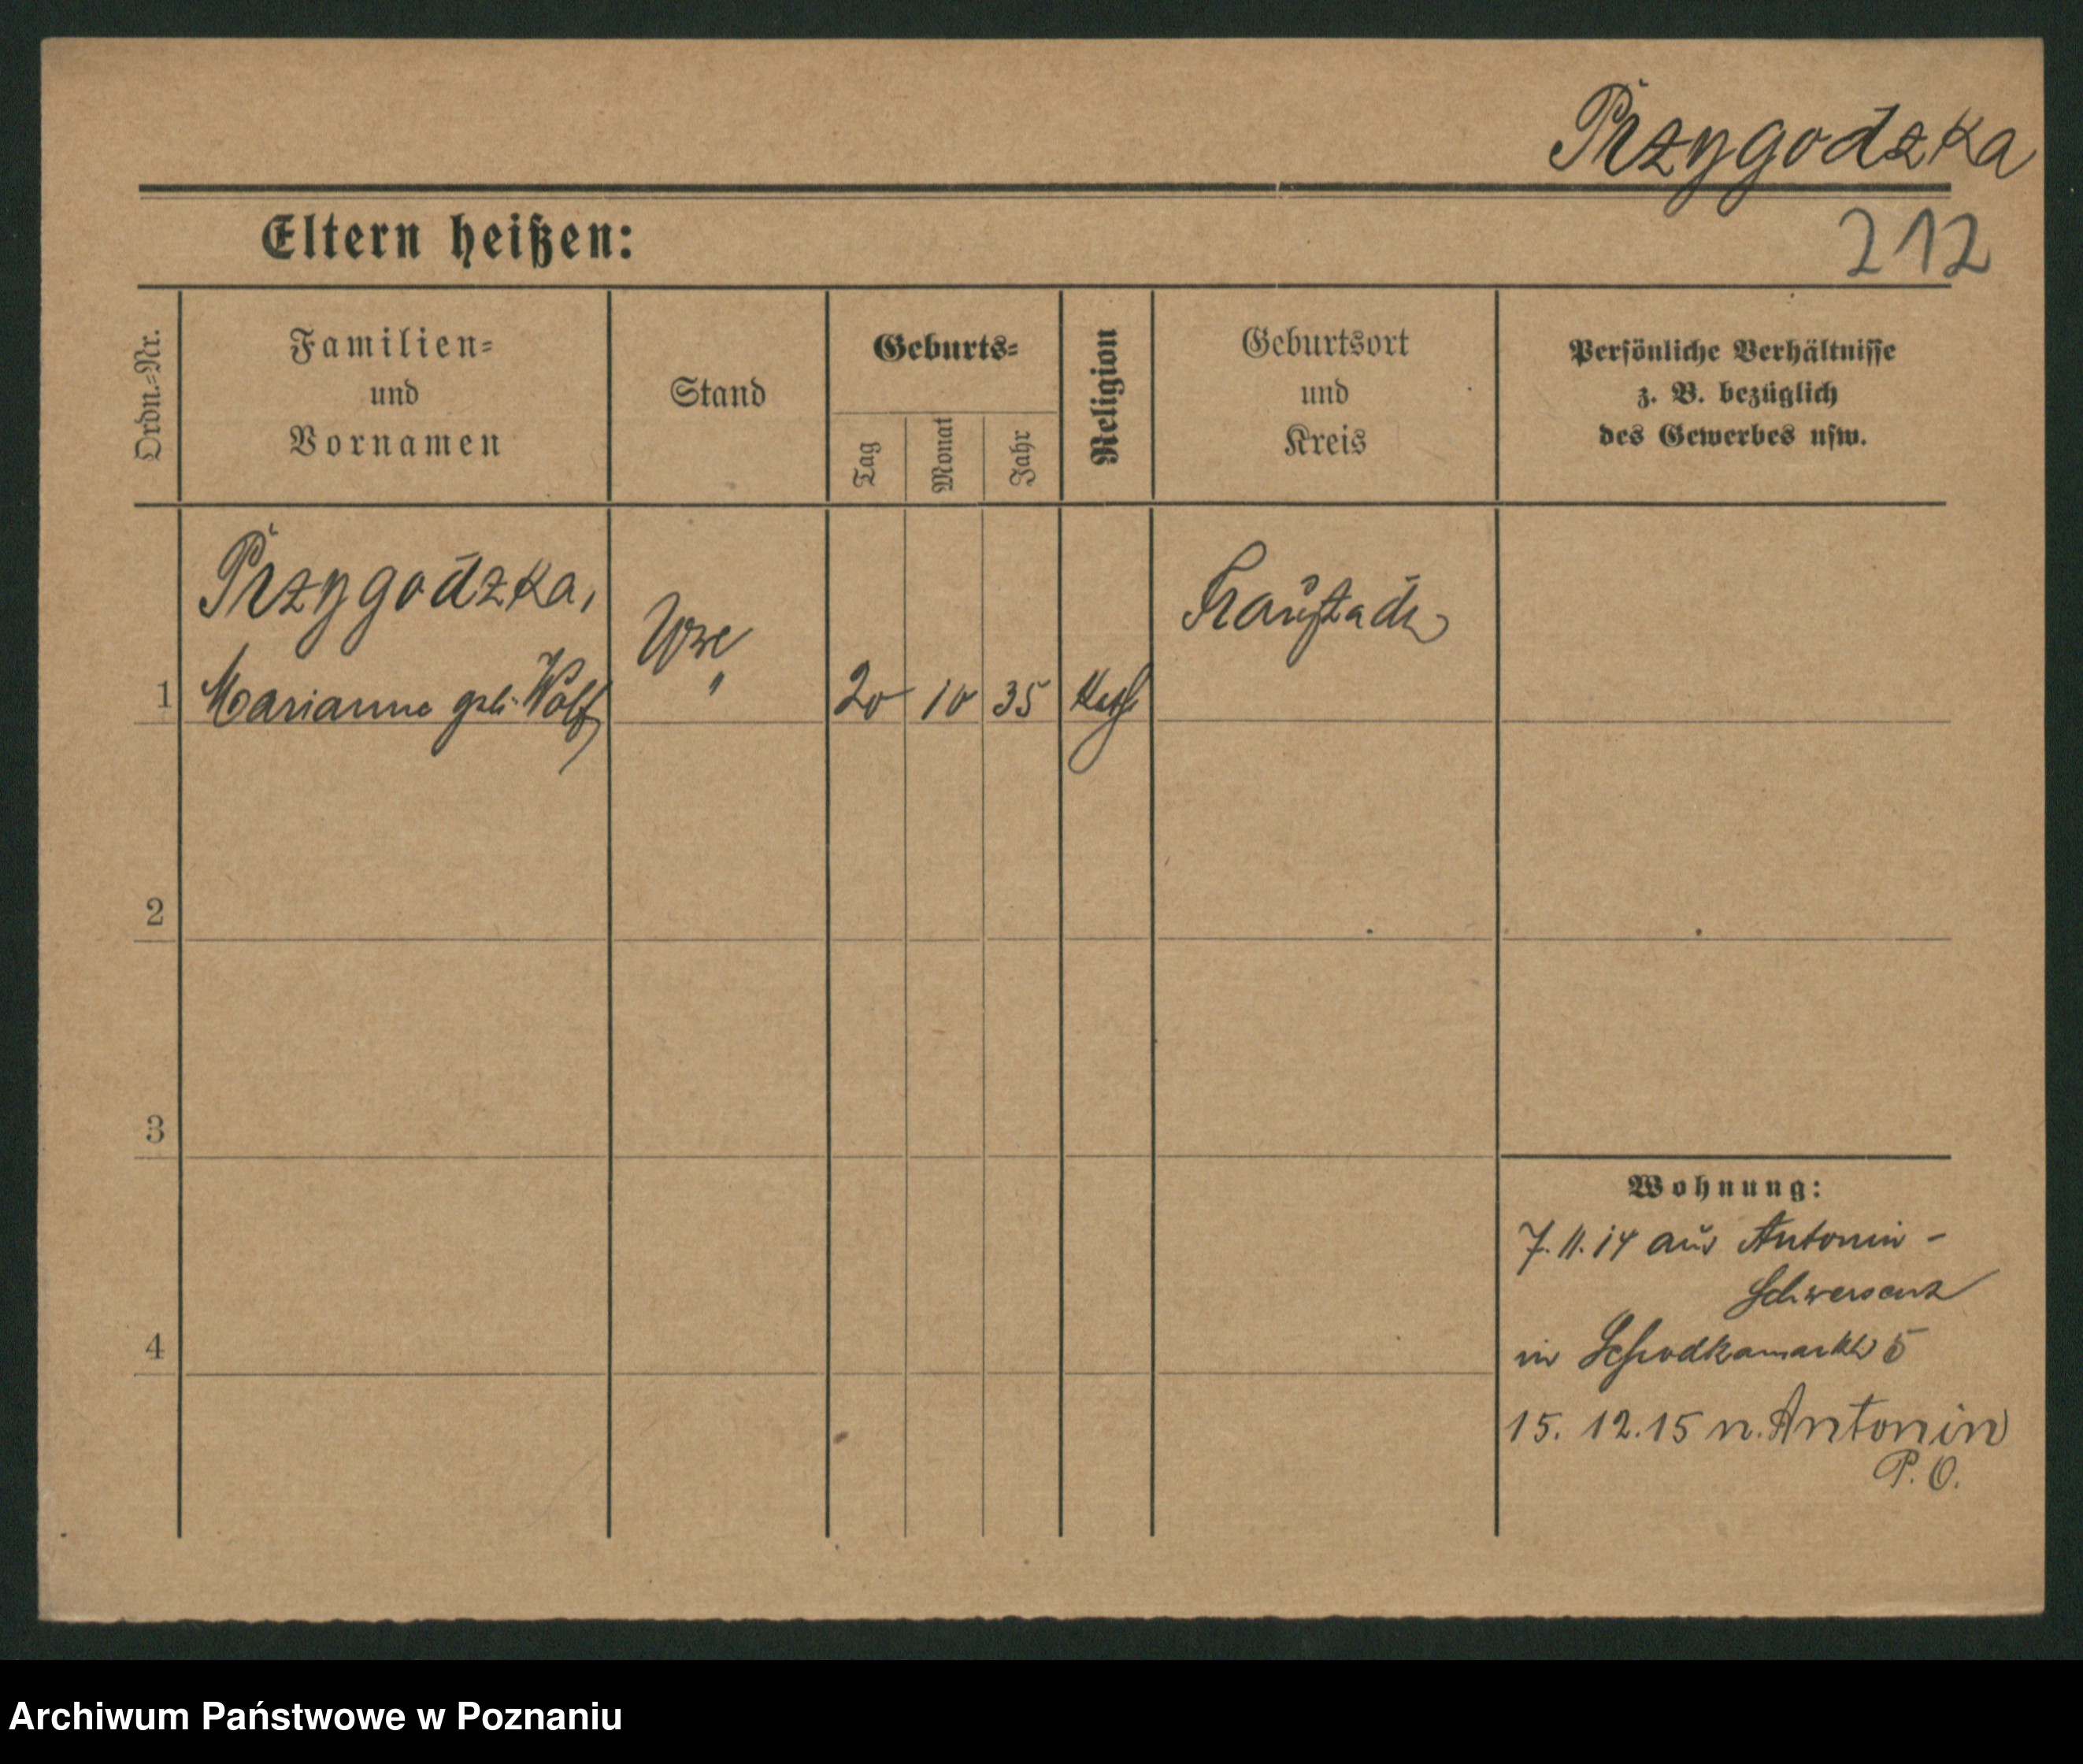 Przygodzka
212
Eltern heißen:
Ordn.=Nr.
Familien=
und
Vornamen
Stand
Geburts=
Tag
Monat
Jahr
Religion
Geburtsort
und
Kreis
Persönliche Verhältnisse
z. B. bezüglich
des Gewerbes usw.
Przygodzka,
Wwe
Fraustadt
1 Marianna geb. Wolf " 20 10 35 Kath
2
3
Wohnung:
7.11.14 aus Antonin -
Schwersenz
in Schrodkamarkt 5
4
15. 12. 15 n. Antonin
P. O.
Archiwum Państwowe w Poznaniu